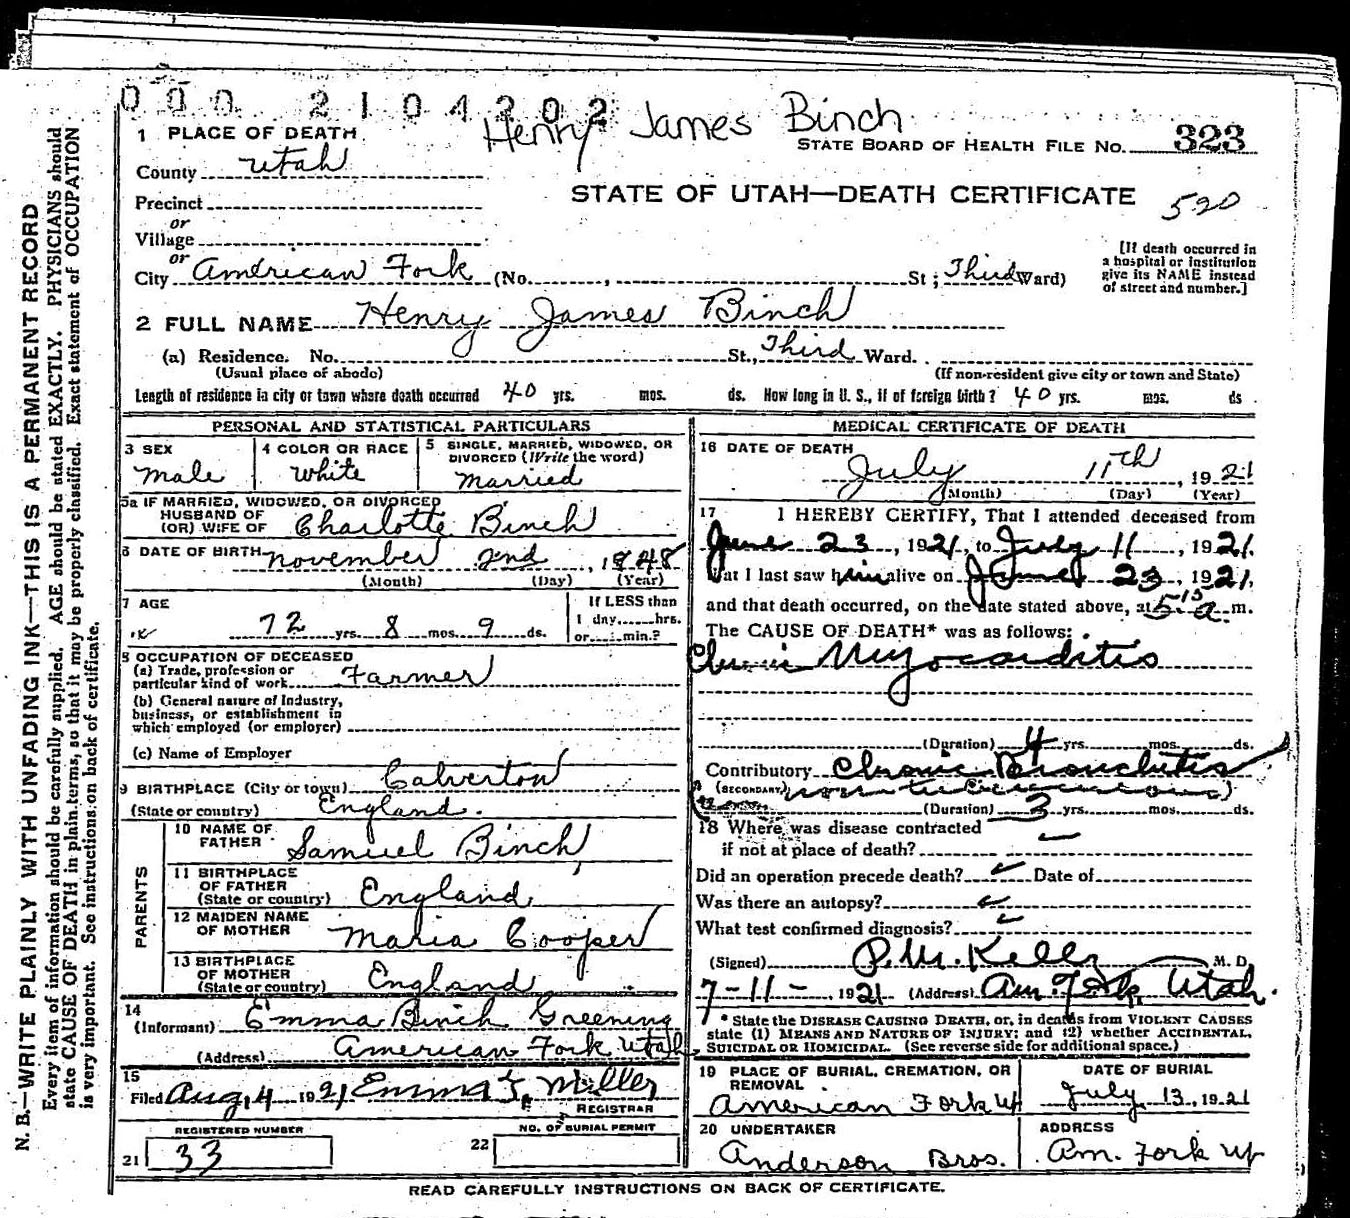 000 2104202
Henry James Binch
1 PLACE OF DEATH
STATE BOARD OF HEALTH FILE NO. 323
County Utah
STATE OF UTAH—DEATH CERTIFICATE 520
Precinct
or
Village
or
City American Fork (No. , St ; Third Ward)
[If death occurred in
a hospital or institution
give its NAME instead
of street and number.]
2 FULL NAME Henry James Binch
(a) Residence. No. St., Third Ward.
(Usual place of abode) (If non-resident give city or town and State)
Length of residence in city or town where death occurred 40 yrs. mos. ds. How long in U. S., if of foreign birth? 40 yrs. mos. ds
PERSONAL AND STATISTICAL PARTICULARS
3 SEX
Male
4 COLOR OR RACE
White
5 SINGLE, MARRIED, WIDOWED, OR
DIVORCED (Write the word)
Married
5a IF MARRIED, WIDOWED, OR DIVORCED
HUSBAND OF
(OR) WIFE OF Charlotte Binch
6 DATE OF BIRTH November 2nd, 1848
(Month) (Day) (Year)
7 AGE
72 yrs. 8 mos. 9 ds.
If LESS than
1 day, hrs.
or min.?
8 OCCUPATION OF DECEASED
(a) Trade, profession or
particular kind of work Farmer
(b) General nature of Industry,
business, or establishment in
which employed (or employer)
(c) Name of Employer
9 BIRTHPLACE (City or town) Calverton
(State or country) England.
PARENTS
10 NAME OF
FATHER Samuel Binch
11 BIRTHPLACE
OF FATHER
(State or country) England
12 MAIDEN NAME
OF MOTHER Maria Cooper
13 BIRTHPLACE
OF MOTHER
(State or country) England
14
(Informant) Emma Binch Greening
(Address) American Fork Utah
15
Filed Aug, 4 1921 Emma F. Miller
REGISTRAR
REGISTERED NUMBER
21 33
NO. OF BURIAL PERMIT
22
MEDICAL CERTIFICATE OF DEATH
16 DATE OF DEATH
July 11th, 1921
(Month) (Day) (Year)
17 I HEREBY CERTIFY, That I attended deceased from
June 23, 1921, to July 11, 1921,
that I last saw him alive on June 23, 1921,
and that death occurred, on the date stated above, at 5:15 a m.
The CAUSE OF DEATH* was as follows:
Chronic Myocarditis
(Duration) 4 yrs. mos. ds.
Contributory Chronic Bronchitis
(SECONDARY) non tuberculous)
(Duration) 3 yrs. mos. ds.
18 Where was disease contracted
if not at place of death?
Did an operation precede death? Date of
Was there an autopsy?
What test confirmed diagnosis?
(Signed) P. M. Kelly M. D.
7-11-, 1921 (Address) Am. Fork, Utah.
* State the DISEASE CAUSING DEATH, or, in deaths from VIOLENT CAUSES
state (1) MEANS AND NATURE OF INJURY; and (2) whether ACCIDENTAL,
SUICIDAL OR HOMICIDAL. (See reverse side for additional space.)
19 PLACE OF BURIAL, CREMATION, OR
REMOVAL
American Fork Ut
DATE OF BURIAL
July, 13, 1921
20 UNDERTAKER
Anderson Bros.
ADDRESS
Am. Fork Ut
READ CAREFULLY INSTRUCTIONS ON BACK OF CERTIFICATE.
N. B.—WRITE PLAINLY WITH UNFADING INK—THIS IS A PERMANENT RECORD
Every item of information should be carefully supplied. AGE should be stated EXACTLY. PHYSICIANS should
state CAUSE OF DEATH in plain terms, so that it may be properly classified. Exact statement of OCCUPATION
is very important. See instructions on back of certificate.